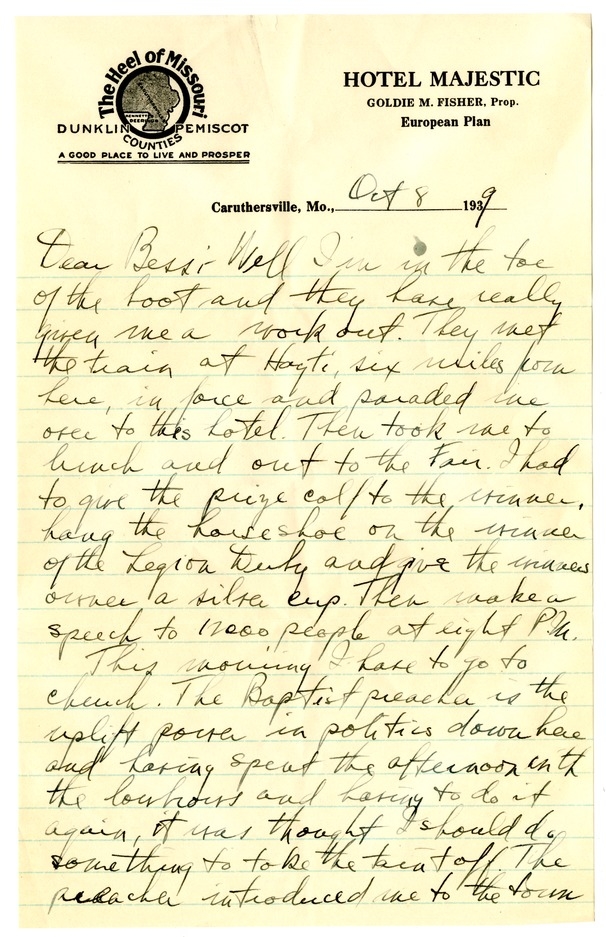 The Heel of Missouri
KENNETT
DEERING
DUNKLIN PEMISCOT
COUNTIES
A GOOD PLACE TO LIVE AND PROSPER
HOTEL MAJESTIC
GOLDIE M. FISHER, Prop.
European Plan
Caruthersville, Mo., Oct 8 1939
Dear Bess:- Well I'm in the toe
of the boot and they have really
given me a work out. They met
the train at Hayti, six miles from
here, in force and paraded me
over to this hotel. Then took me to
lunch and out to the Fair. I had
to give the prize calf to the winner,
hang the horseshoe on the winner
of the Legion Derby and give the winners
owner a silver cup. Then make a
speech to 12000 people at eight P.M.
This morning I have to go to
church. The Baptist preacher is the
uplift power in politics down here
and having spent the afternoon with
the lowbrows and having to do it
again, it was thought I should do
something to take the taint off. The
preacher introduced me to the town